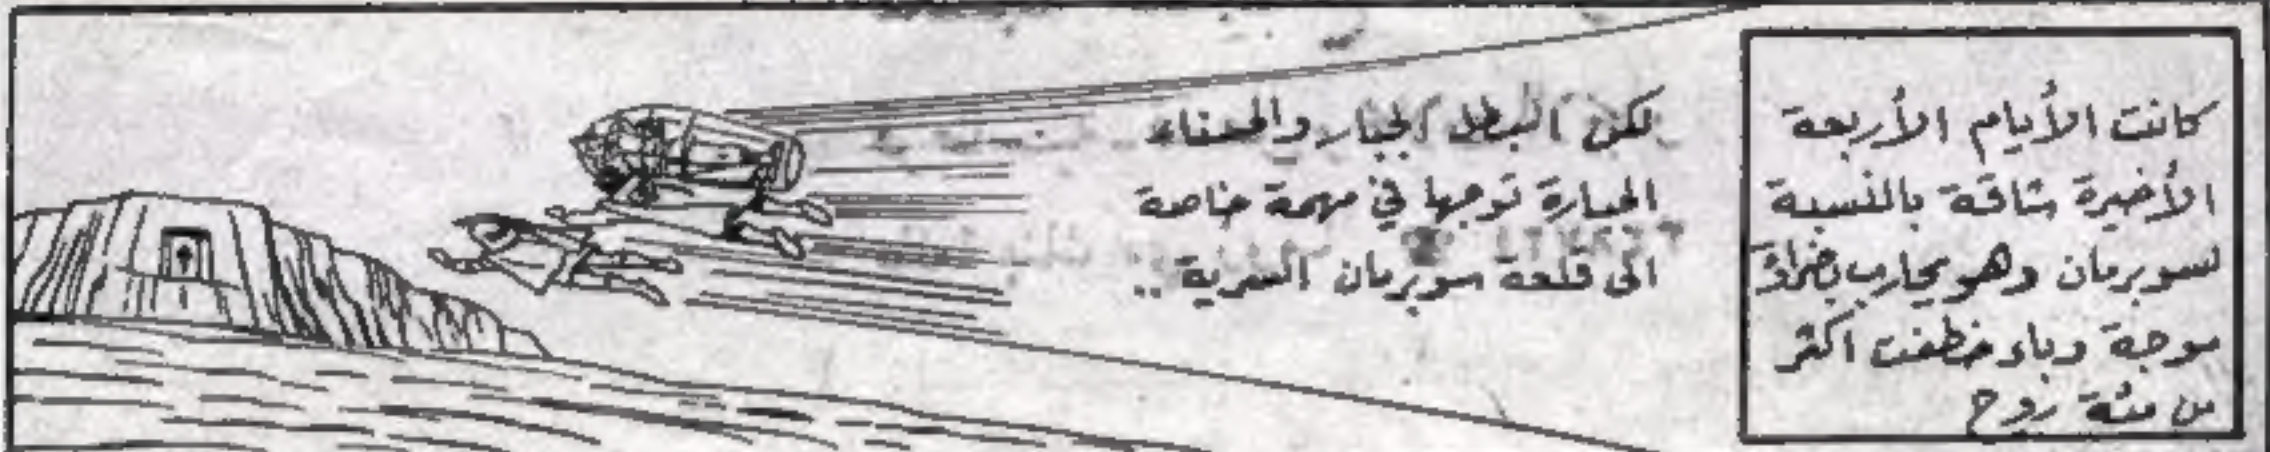 كانت الأيام الأربعة
الأخيرة شاقة بالنسبة
لسوبرمان وهو يحارب بضراوة
موجة وباء خطفت اكثر
من مئة روح
لكن البطل الجبار والحسناء
الجبارة توجها في مهمة خاصة
الى قلعة سوبرمان السرية ..